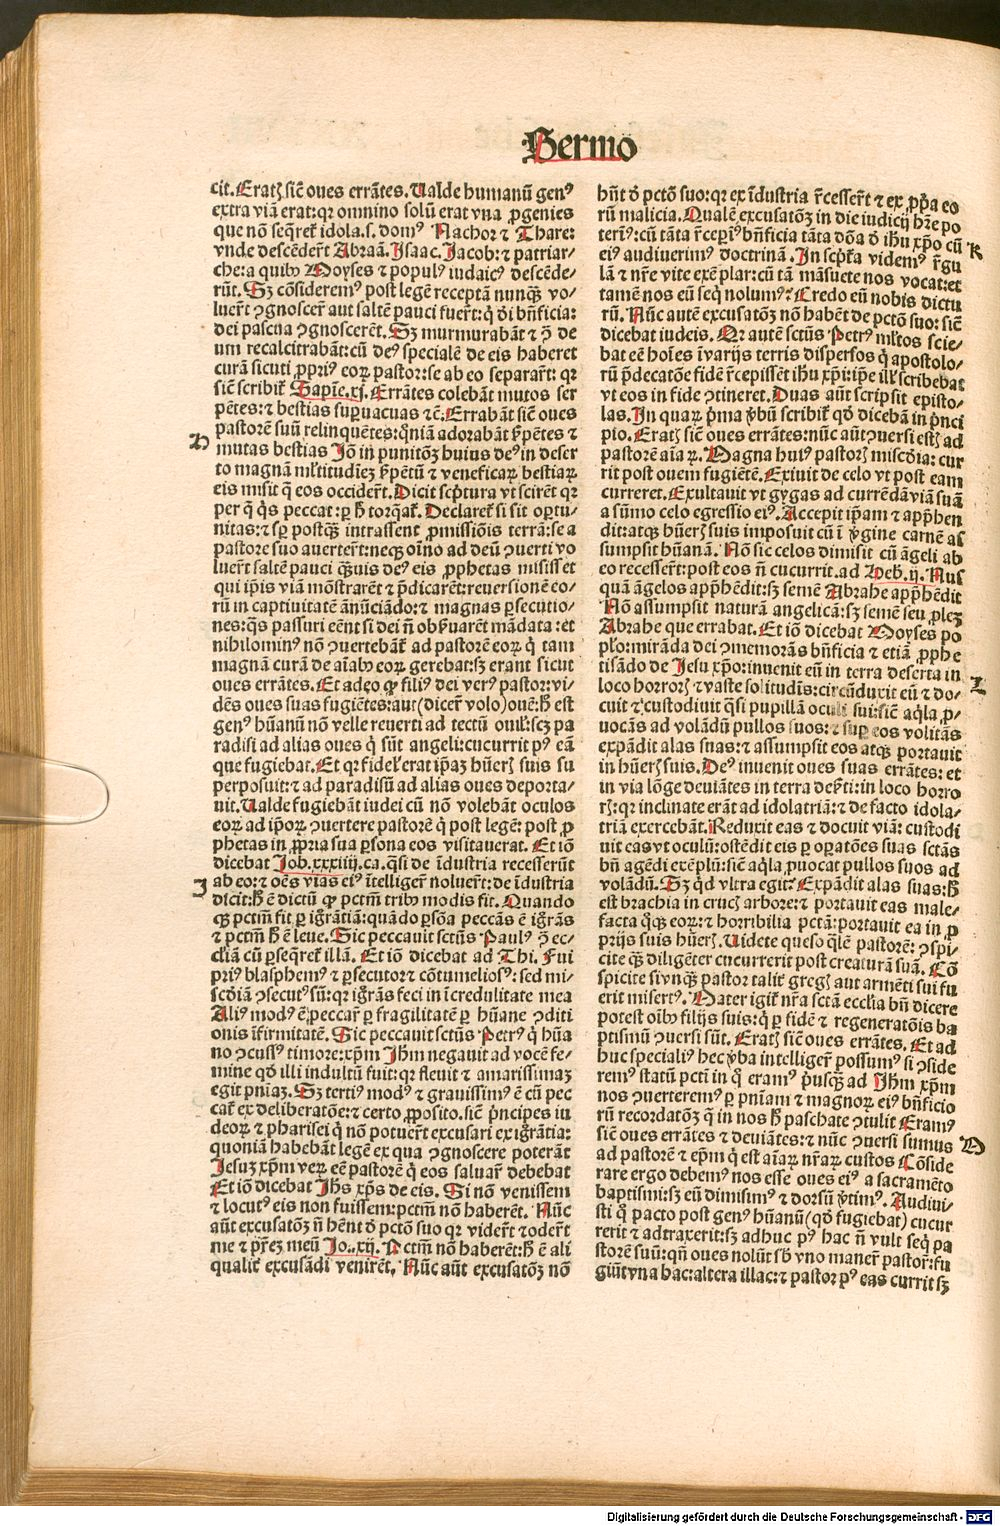 Sermo
cit. Eratꝫ sic̄ oues errātes. Ualde humanū genꝰ
extra viā erat: qꝛ omnino solū erat vna ꝓgenies
que nō seq̄ret̄ idola .s. domꝰ Nachor ⁊ Thare:
vnde descēder̄t Abraā. Isaac. Jacob: ⁊ patriar⸗
che: a quibꝰ Moyses ⁊ populꝰ iudaicꝰ descēde⸗
rūt. Sꝫ cōsideremꝰ post legē receptā nunqꝫ vo⸗
luer̄t ꝯgnoscer̄ aut saltē pauci fuer̄t: q̇ d̄i bn̄ficia:
dei pascua ꝯgnoscerēt. Sꝫ murmurabāt ⁊ ꝯ̄ de
um recalcitrabāt: cū deꝰ specialē de eis haberet
curā sicuti ꝓpriꝰ eoꝝ pastor: se ab eo separar̄t: qꝛ
sic̄ scribit̄ Sapiē. xj. Errātes colebāt mutos ser
pētes: ⁊ bestias suꝑuacuas ⁊c̄: Errabāt sic̄ oues
pastorē suū relinquētes: qm̄iā adorabāt ẜpētes ⁊
H
mutas bestias Jō in punitōꝫ huius deꝰ in deser
to magnā ml̄titudieꝫ ẜpētū ⁊ veneficaꝝ bestiaꝝ
eis misit q̄ eos occider̄t. Dicit scp̄tura vt scirēt qꝛ
per q̄ q̇s peccat: ꝑ h̄ torqt̄. Declaret̄ si sit oꝑtu⸗
nitas: ⁊ sꝑ postqꝫ intrassent ꝓmissiōis terrā: se a
pastore suo auerter̄t: neqꝫ oīno ad deū ꝯuerti vo
luer̄t saltē pauci qꝫuis deꝰ eis ꝓphetas misisset
qui ip̄is viā mōstrarēt ⁊ p̄dicarēt: reuersionē eo⸗
rū in captiuitatē ānūciādo: ⁊ magnas ꝑsecutio⸗
nes: q̄s passuri eēnt si dei n̄ obẜuarēt mādata: et
nihilominꝰ nō ꝯuertebāt̄ ad pastorē eoꝝ q̇ tam
magnā curā de aīabꝰ eoꝝ gerebat: sꝫ erant sicut
oues errātes. Et adeo ꝙ filiꝰ dei verꝰ pastor: vi⸗
dēs oues suas fugiētes: aut (dicer̄ volo) ouē: h̄ est
genꝰ hūanū nō velle reuerti ad tectū ouil̄: scꝫ pa
radisi ad alias oues q̇ sūt angeli: cucurrit pꝰ eā
que fugiebat. Et qꝛ fidel̄ erat ip̄aꝫ hūerꝫ suis su
perposuit: ⁊ ad paradisū ad alias oues deporta⸗
uit. Ualde fugiebāt iudei cū nō volebāt oculos
eoꝝ ad ip̄oꝝ ꝯuertere pastorē q̇ post legē: post ꝓ
phetas in ꝓpria sua ꝑsona eos visitauerat. Et iō
dicebat Job. xxxiiij. ca. q̄si de īdustria recesserūt
J
ab eo: ⁊ oēs vias eiꝰ ītelliger̄ noluer̄t: de īdustria
dicit: h̄ ē dictū ꝙ pctm̄ tribꝰ modis fit. Quando
qꝫ pctm̄ fit ꝑ igr̄ātiā: quādo ꝑsōa peccās ē igr̄ās
⁊ pctm̄ h̄ ē leue. Sic peccauit sctūs Paulꝰ ꝯ̄ ec⸗
cl̄iā cū ꝑseq̄ret̄ illā. Et iō dicebat ad Thi. Fui
priꝰ blasphemꝰ ⁊ ꝑsecutor ⁊ cōtumeliosꝰ: sed mi⸗
scd̄iā ꝯsecutꝰ sū: qꝛ igr̄ās feci in īcredulitate mea
Aliꝰ modꝰ ē peccar̄ ꝑ fragilitatē ꝑ hūane ꝯditi
onis īfirmitatē. Sic peccauit sctūs Petrꝰ q̇ hūa
no ꝯcussꝰ timore: xp̄m Jhm̄ negauit ad vocē fe⸗
mine qd̄ illi indultū fuit: qꝛ fleuit ⁊ amarissimaꝫ
egit pn̄iaꝫ. Sꝫ tertiꝰ modꝰ ⁊ grauissimꝰ ē cū pec
cat̄ ex deliberatōe: ⁊ certo ꝓposito. sic̄ pn̄cipes iu
deoꝝ ⁊ pharisei q̇ nō potuer̄t excusari ex igr̄ātia:
quoniā habebāt legē ex qua ꝯgnoscere poterāt
Jesuꝫ xp̄m veꝝ eē pastorē q̇ eos saluar̄ debebat
Et iō dicebat Jhs̄ xp̄s de eis. Si nō venissem
⁊ locutꝰ eis non fuissem: pctm̄ nō haberēt. Nūc
aūt excusatōꝫ n̄ hēnt d̄ pctō suo qꝛ vider̄t ⁊ oder̄t
me ⁊ pr̄eꝫ meū Jo. xij. Pctm̄ nō haberēt: h̄ ē ali
qualit̄ excusādi venirēt, Nūc aūt excusatōꝫ nō
hn̄t d̄ pctō suo: qꝛ ex īdustria r̄cesser̄t ⁊ ex ꝓp̄a eo
rū malicia. Qualē excusatōꝫ in die iudicij hr̄e po
K
terīꝰ: cū tāta r̄ceꝑīꝰ bn̄ficia tāta dōa d̄ ihū xp̄o cū
eiꝰ audiuerimꝰ doctrinā. In scp̄t̄a videmꝰ r̄gu
lā ⁊ nr̄e vite exēplar: cū tā māsuete nos vocat: et
tamē nos eū seq̇ nolumꝰ? Credo eū nobis dictu
rū. Nūc autē excusatōꝫ nō habēt de pctō suo: sic̄
dicebat iudeis. Qꝛ autē sctūs Petrꝰ ml̄tos scie⸗
bat eē hoīes ī varijs terris dispersos q̇ apostolo⸗
rū p̄decatōe fidē r̄cepissēt ihū xp̄i: ip̄e ill̄ scribebat
vt eos in fide ꝯtineret. Duas aūt scripsit episto⸗
las. In quaꝝ p̄ma v̄bū scribit̄ qd̄ dicebā in p̄nci
pio. Eratꝫ sic̄ oues errātes: nūc aūt ꝯuersi estꝫ ad
pastorē aīaꝝ. Magna huiꝰ pastorꝫ miscd̄ia: cur
rit post ouem fugiētē. Exiuit de celo vt post eam
curreret. Exultauit vt gygas ad currēdā viā suā
a sūmo celo egressio eiꝰ. Accepit ip̄am ⁊ app̄hen
dit: atqꝫ hūerꝫ suis imposuit cū ī v̄gine carnē as
sumpsit hūanā. Nō sic celos dimisit cū āgeli ab
eo recesser̄t: post eos n̄ cucurrit. ad Heb. ij. Nus
quā āgelos app̄hēdit: sꝫ semē Abrahe app̄hēdit
Nō assumpsit naturā angelicā: sꝫ semē seu ꝓleꝫ
Abrahe que errabat. Et iō dicebat Moyses po
pl̄o: mirāda dei ꝯmemorās bn̄ficia ⁊ etiā ꝓphe
tisādo de Jesu xp̄o: inuenit eū in terra deserta in
L
loco horrorꝫ ⁊ vaste solitudīs: circūduxit eū ⁊ do⸗
cuit ⁊ custodiuit q̄si pupillā oculi sui: sic̄ aq̄la ꝓ⸗
uocās ad volādū pullos suos: ⁊ sup eos volitās
expādit alas suas: ⁊ assumpsit eos atqꝫ portauit
in hūerꝫ suis. Deꝰ inuenit oues suas errātes: et
in via lōge deuiātes in terra deẜti: in loco horro
rꝫ: qꝛ inclinate erāt ad idolatriā: ⁊ de facto idola⸗
triā exercebāt. Reduxit eas ⁊ docuit viā: custodi
uit eas vt oculū: ostēdit eis ꝑ oꝑatōes suas sctās
bn̄ agēdi exēplū: sic̄ aq̄la ꝓuocat pullos suos ad
volādū. Sꝫ q̇d vltra egit? Expādit alas suas: h̄
est brachia in crucꝫ arbore: ⁊ portauit eas male⸗
facta q̄qꝫ eoꝝ: ⁊ horribilia pctā: portauit ea in ꝓ
prijs suis hūerꝫ. Uidete queso q̄lē pastorē: ꝯspi⸗
cite qꝫ diligēter cucurrerit post creaturā suā. Cō
spicite si vnqꝫ pastor talit̄ gregꝫ aut armēti sui fu
erit misertꝰ. Mater igit̄ nr̄a sctā eccl̄ia bn̄ dicere
potest oībꝰ filijs suis: q̇ ꝑ fidē ⁊ regeneratōis ba
ptismū ꝯuersi sūt. Eratꝫ sic̄ oues errātes. Et ad
huc specialiꝰ hec v̄ba intelliger̄ possumꝰ si ꝯside
remꝰ statū pcti in q̇ eramꝰ p̄usqꝫ ad Jhm̄ xp̄m
nos ꝯuerteremꝰ ꝑ pn̄iam ⁊ magnoꝝ eiꝰ bn̄ficio
rū recordatōꝫ q̄ in nos h̄ paschate ꝯtulit Eramꝰ
M
sic̄ oues errātes ⁊ deuiātes: ⁊ nūc ꝯuersi sumus
ad pastorē ⁊ ep̄m q̇ est aīaꝝ nr̄aꝝ custos Cōside
rare ergo debemꝰ nos esse oues eiꝰ a sacramēto
baptismi: sꝫ eū dimisimꝰ ⁊ dorsū v̄timꝰ. Audiui⸗
sti q̇ pacto post genꝰ hūanū (qd̄ fugiebat) cucur
rerit ⁊ adtraxerit: sꝫ adhuc pꝰ hac n̄ vult seq̇ pa
storē suū: qn̄ oues nolūt sb̄ vno maner̄ pastor̄: fu
giūt vna hac: altera illac: ⁊ pastor pꝰ eas currit sꝫ
Digitalisierung gefördert durch die Deutsche Forschungsgemeinschaft - DFG